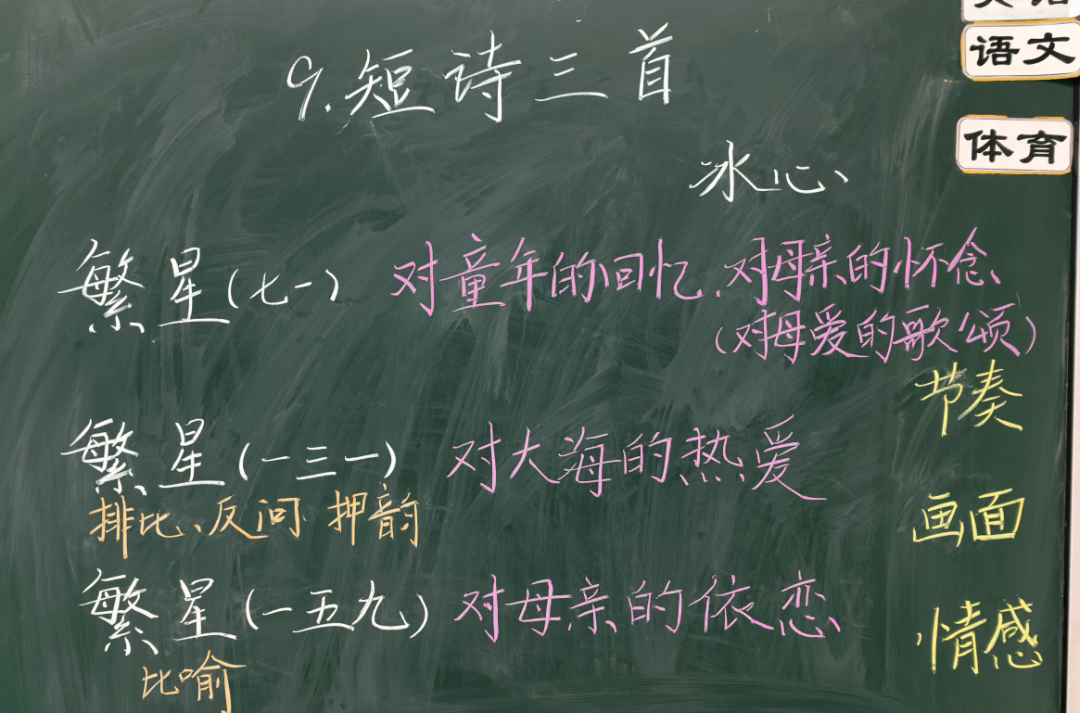 9.短诗三首
冰心
繁星(七一) 对童年的回忆、对母亲的怀念
(对母爱的歌颂)
繁星(一三一) 对大海的热爱
排比、反问 押韵
繁星(一五九) 对母亲的依恋
比喻
节奏
画面
情感
语文
体育